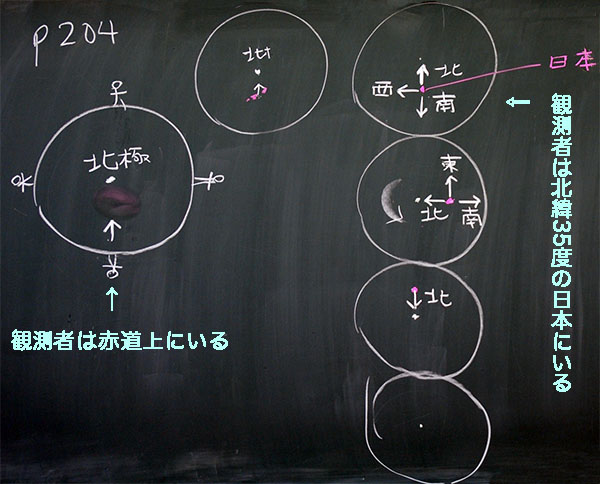 p204
北極
観測者は赤道上にいる
北
北
西
南
日本
観測者は北緯35度の日本にいる
東
北
南
北